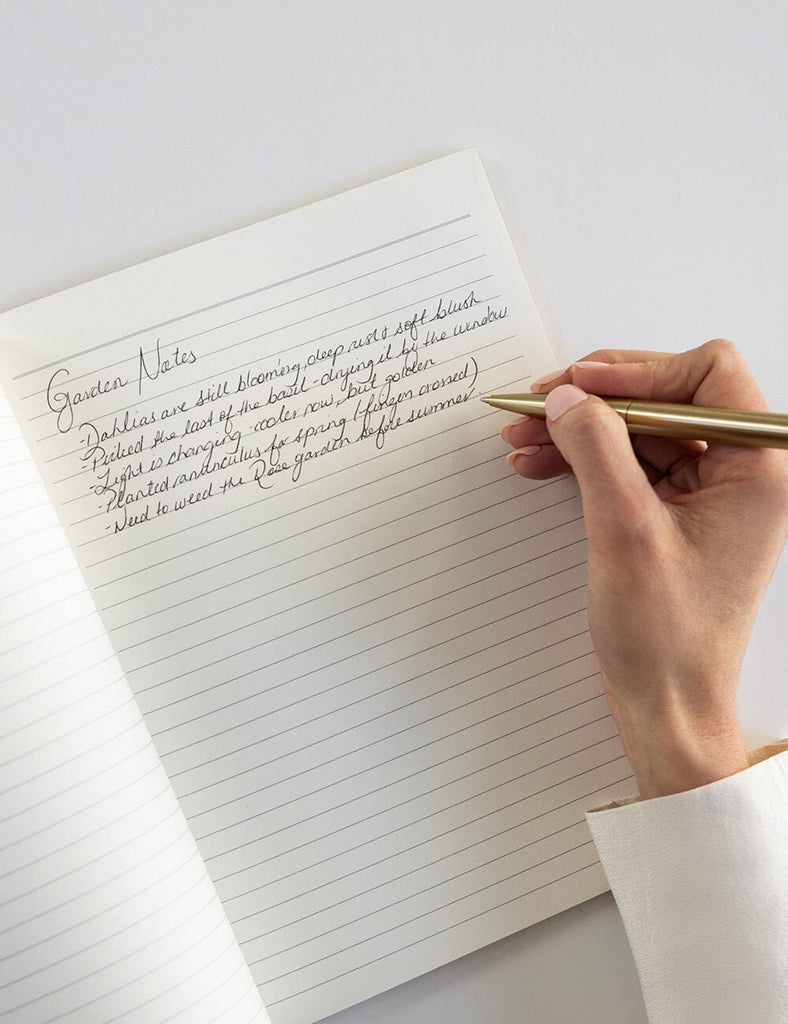 Garden Notes
-Dahlias are still blooming, deep rust & soft blush
-Picked the last of the basil - drying it by the window
-Light is changing - cooler now, but golden
-Planted ranunculus for spring (fingers crossed)
-Need to weed the Rose garden before summer